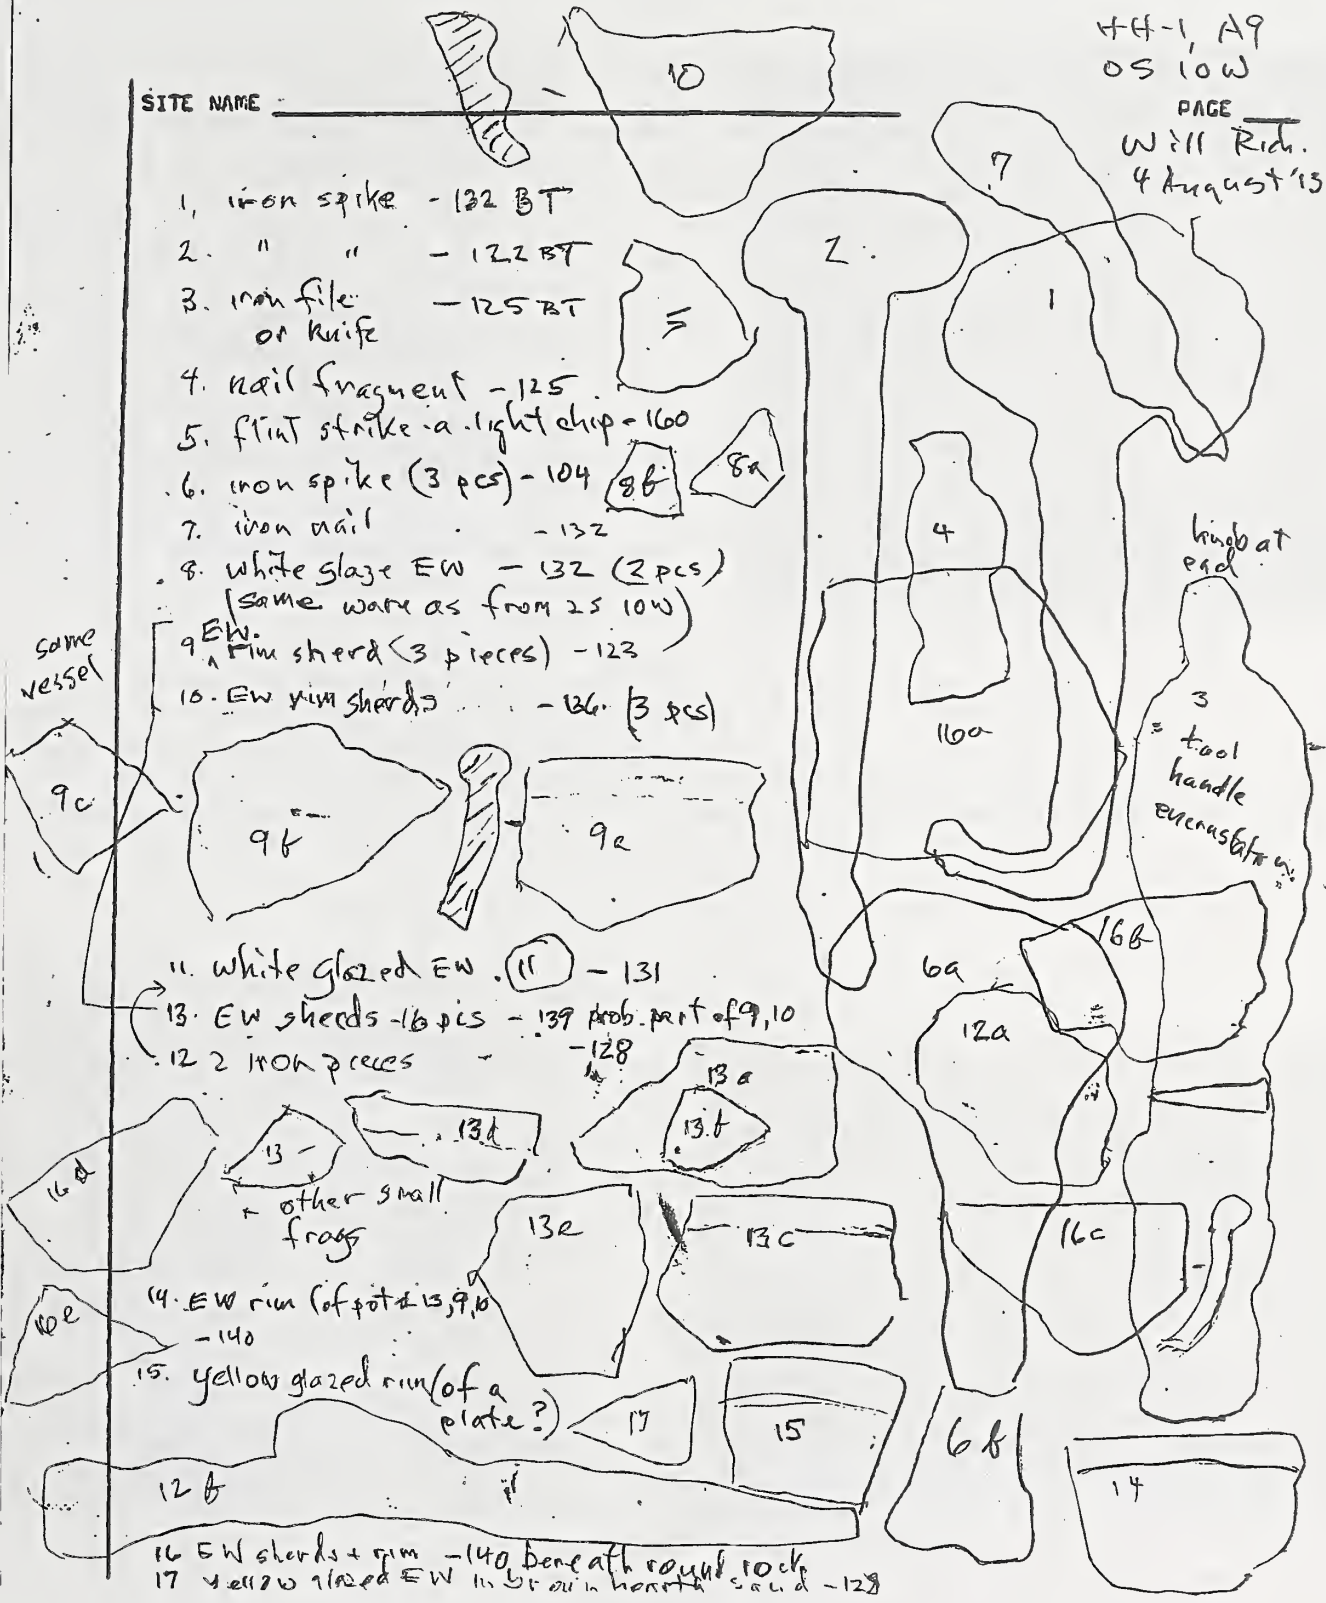 HH-1, A9
0S 10W
SITE NAME
PAGE
Will Rich.
4 August '13
10
7
1. iron spike - 132 BT
2. " " - 122 BT
3. iron file - 125 BT
or knife
4. nail fragment - 125
5. flint strike-a-light chip - 160
6. iron spike (3 pcs) - 104
7. iron nail - 132
8. white glaze EW - 132 (2 pcs)
(same ware as from 2S 10W)
9 EW. rim sherd (3 pieces) - 123
10. EW rim sherds - 136. (3 pcs)
same
vessel
2
1
5
8b
8a
4
knob at
end
16a
3
= tool
handle
encrustation.
9c
9b
9a
11. white glazed EW. 11 - 131
13. EW sherds - 16 pcs - 139 prob. part of 9, 10
12 2 iron pieces - 128
6a
16b
12a
13a
13b
13d
13
other small
frags
16d
13e
13c
16c
14. EW rim (of pot 13, 9, 10
- 140
16e
15. yellow glazed rim (of a
plate?)
17
15
6b
14
12b
16 EW sherds + rim - 140 beneath round rock
17 yellow glazed EW in brown hearth sand - 128